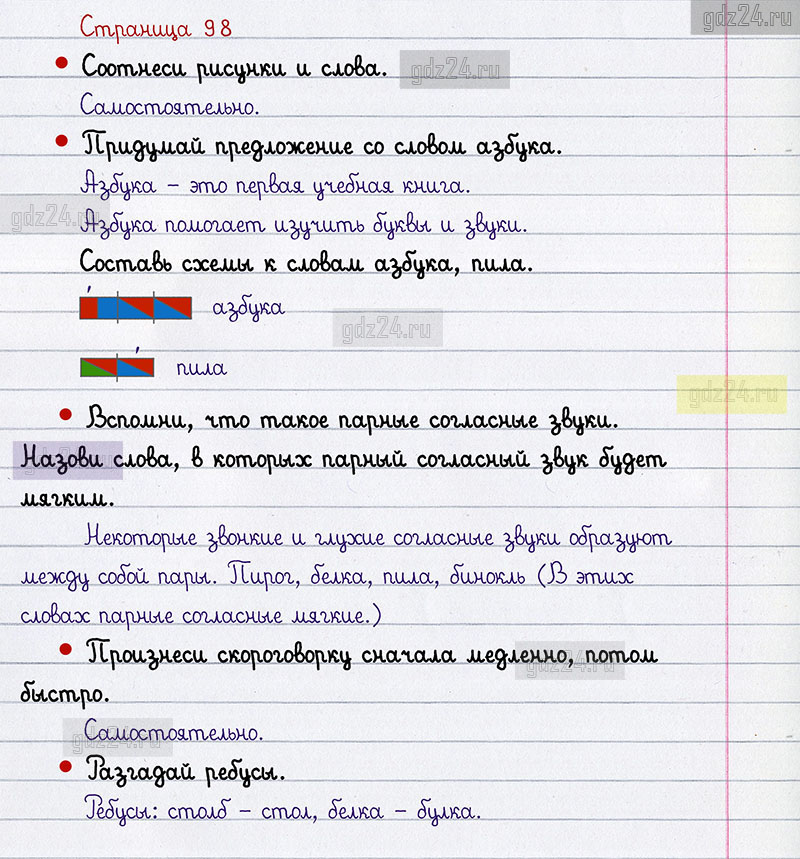 gdz24.ru
Страница 98
• Соотнеси рисунки и слова.
gdz24.ru
Самостоятельно.
• Придумай предложение со словом азбука.
Азбука – это первая учебная книга.
gdz24.ru
Азбука помогает изучить буквы и звуки.
Составь схемы к словам азбука, пила.
азбука
gdz24.ru
пила
gdz24.ru
• Вспомни, что такое парные согласные звуки.
Назови слова, в которых парный согласный звук будет
мягким.
Некоторые звонкие и глухие согласные звуки образуют
между собой пары. Пирог, белка, пила, бинокль (В этих
словах парные согласные мягкие.)
• Произнеси скороговорку сначала медленно, потом
gdz24.ru
быстро.
Самостоятельно.
gdz24.ru
• Разгадай ребусы.
Ребусы: столб – стол, белка – булка.